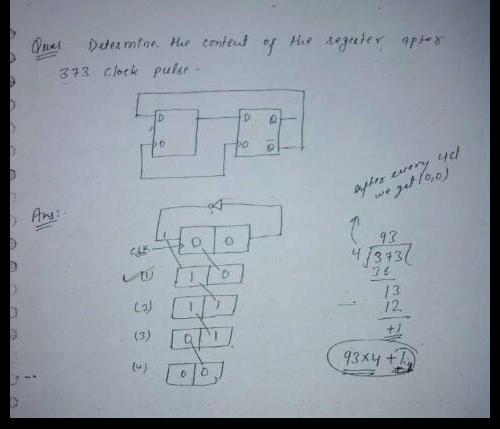 Ques Determine the content of the regester after
373 Clock pulse.
D D Q
Q̅
Ans:
after every 4cl
we get (0,0)
CLK 0 0
(1) 1 0
(2) 1 1
(3) 0 1
(4) 0 0
93
4 373
36
13
12
+1
93×4 + 1